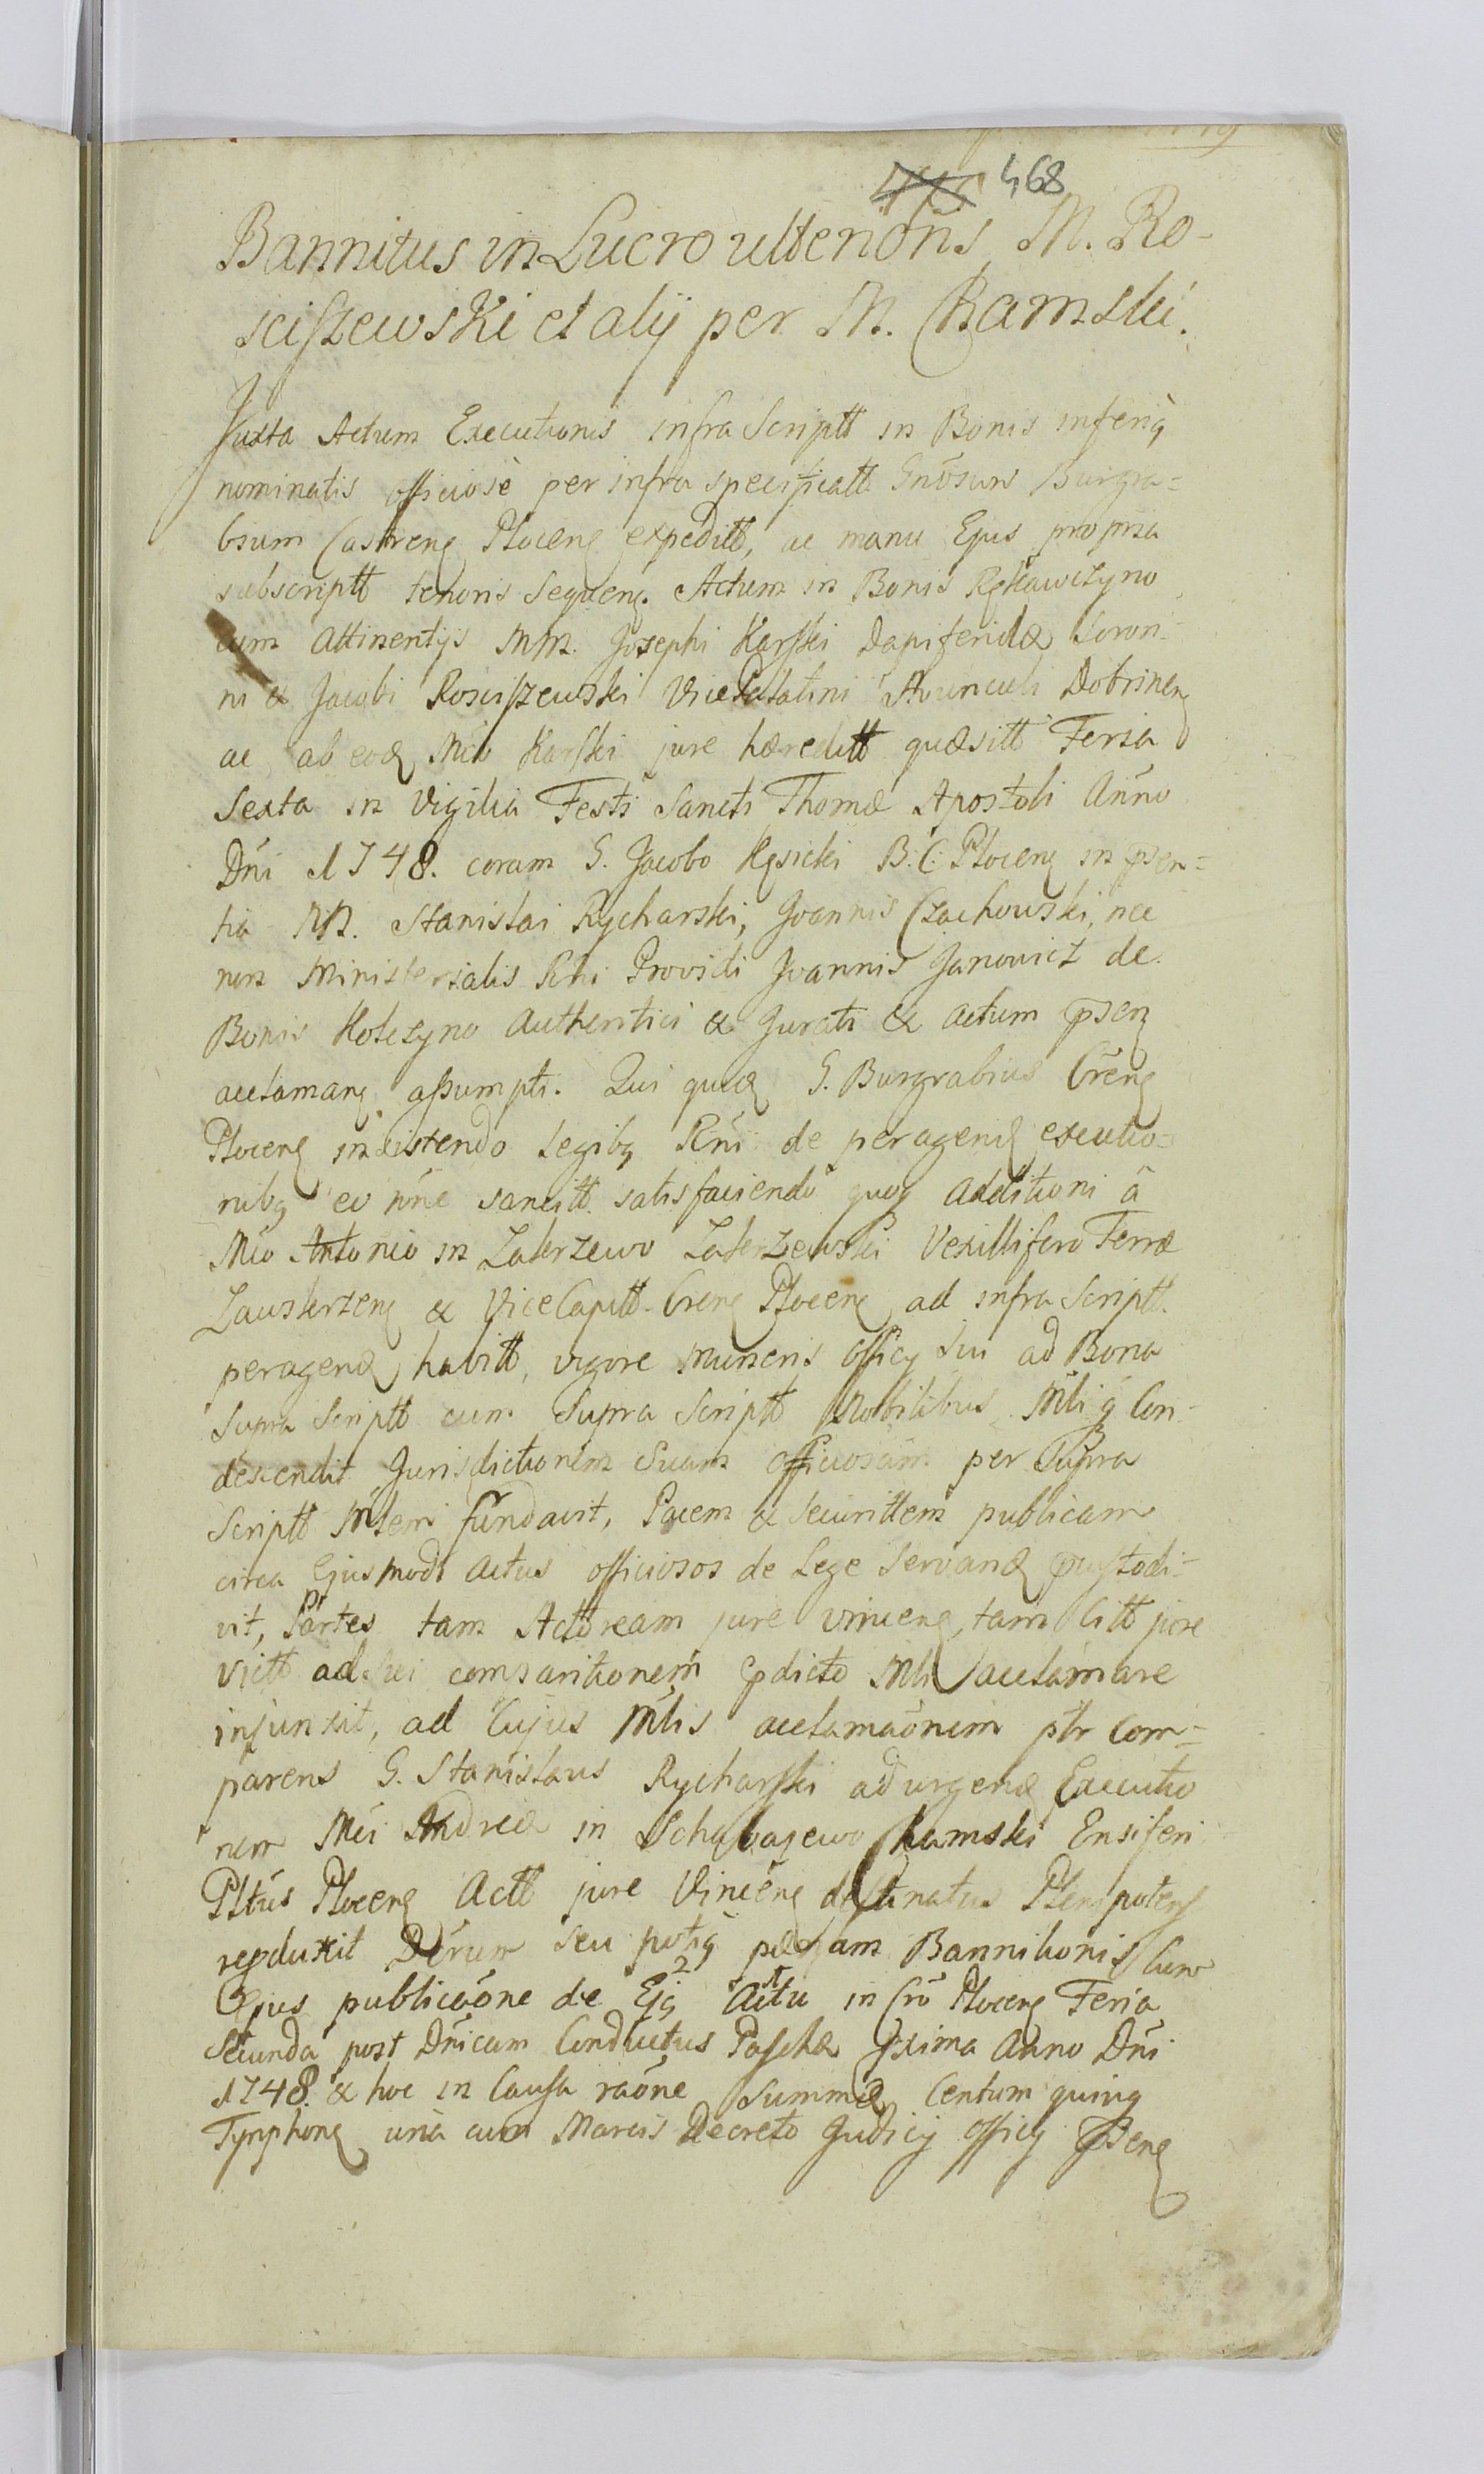 468
Bannitus in Lucro ulterioris M. Ro-
sciszewski et alij per M. Ramski.
Juxta Actum Executionis infra Scriptt in Bonis inferiq
nominatis officiosè per infra specificatt Gnosum Burgra=
bium Castrenq Plocenq expeditt, ac manu Ejus propria
subscriptt tenoris Sequenq. Actum in Bonis Rękawczyno
cum Attinentijs MM. Josephi Karski Dapiferidæ Soron-
ni & Jacobi Rosciszewski VicePalatini Avunculi Dobrinen
ac ab eoq Mco Karski jure hæreditt quæsitt Feria
Sexta in Vigilia Festi Sancti Thomæ Apostoli Anno
Dni 1748. coram G. Jacobo Kęsicki B. C. Plocenq in psen=
tia NN. Stanislai Rycharski, Joannis Czachowski, nec
non Ministerialis Rni Providi Joannis Janowicz de
Bonis Kolczyno Authentici & Jurati & actum psen
acclamanq assumpti. Qui quidq G. Burgrabius Crenq
Plocenq insistendo Legibq Rni de peragenq executio=
nibq eo nne sancitt satisfaciendo quoq Additioni à
Mco Antonio in Zakrzewo Zakrzewski Vexillifero Terræ
Zawskrzenq & ViceCapitt Crenq Plocenq ad infra Scriptt
peragenq habitt, vigore muneris Officij Sui ad Bona
Supra Scriptt cum Supra Scriptt Nobilibus Mliq Con-
descendit Jurisdictionem Suam officiosam per Supra
Scriptt Mlem fundavit, Pacem & Securittem publicam
circa Ejusmodi Actus officiosos de Lege Servanq pcustodi-
vit, Partes tam Actoream jure vincenq, tam Citt jure
Victt ad sui comparitionem pdicto Mli acclamare
injunxit, ad Cujus Mlis acclamaonem ptr Com-
parens G. Stanislaus Rycharski ad urgenq Executio
nem Mci Andreæ in Schabajewo Ramski Ensiferi
Pltus Plocenq Actt jure Vincenq destinatus Plenipotens
repduxit Dcrum seu potiq pænam Bannitionis cum
Ejus publicaone de Ejq Actu in Cro Plocenq Feria
Secunda post Dnicam Conductus Paschæ pxima Anno Dni
1748. & hoc in Causa raone Summæ Centum quinq
Tymphonq una cum Marcis Decreto Judicij Officij psenq